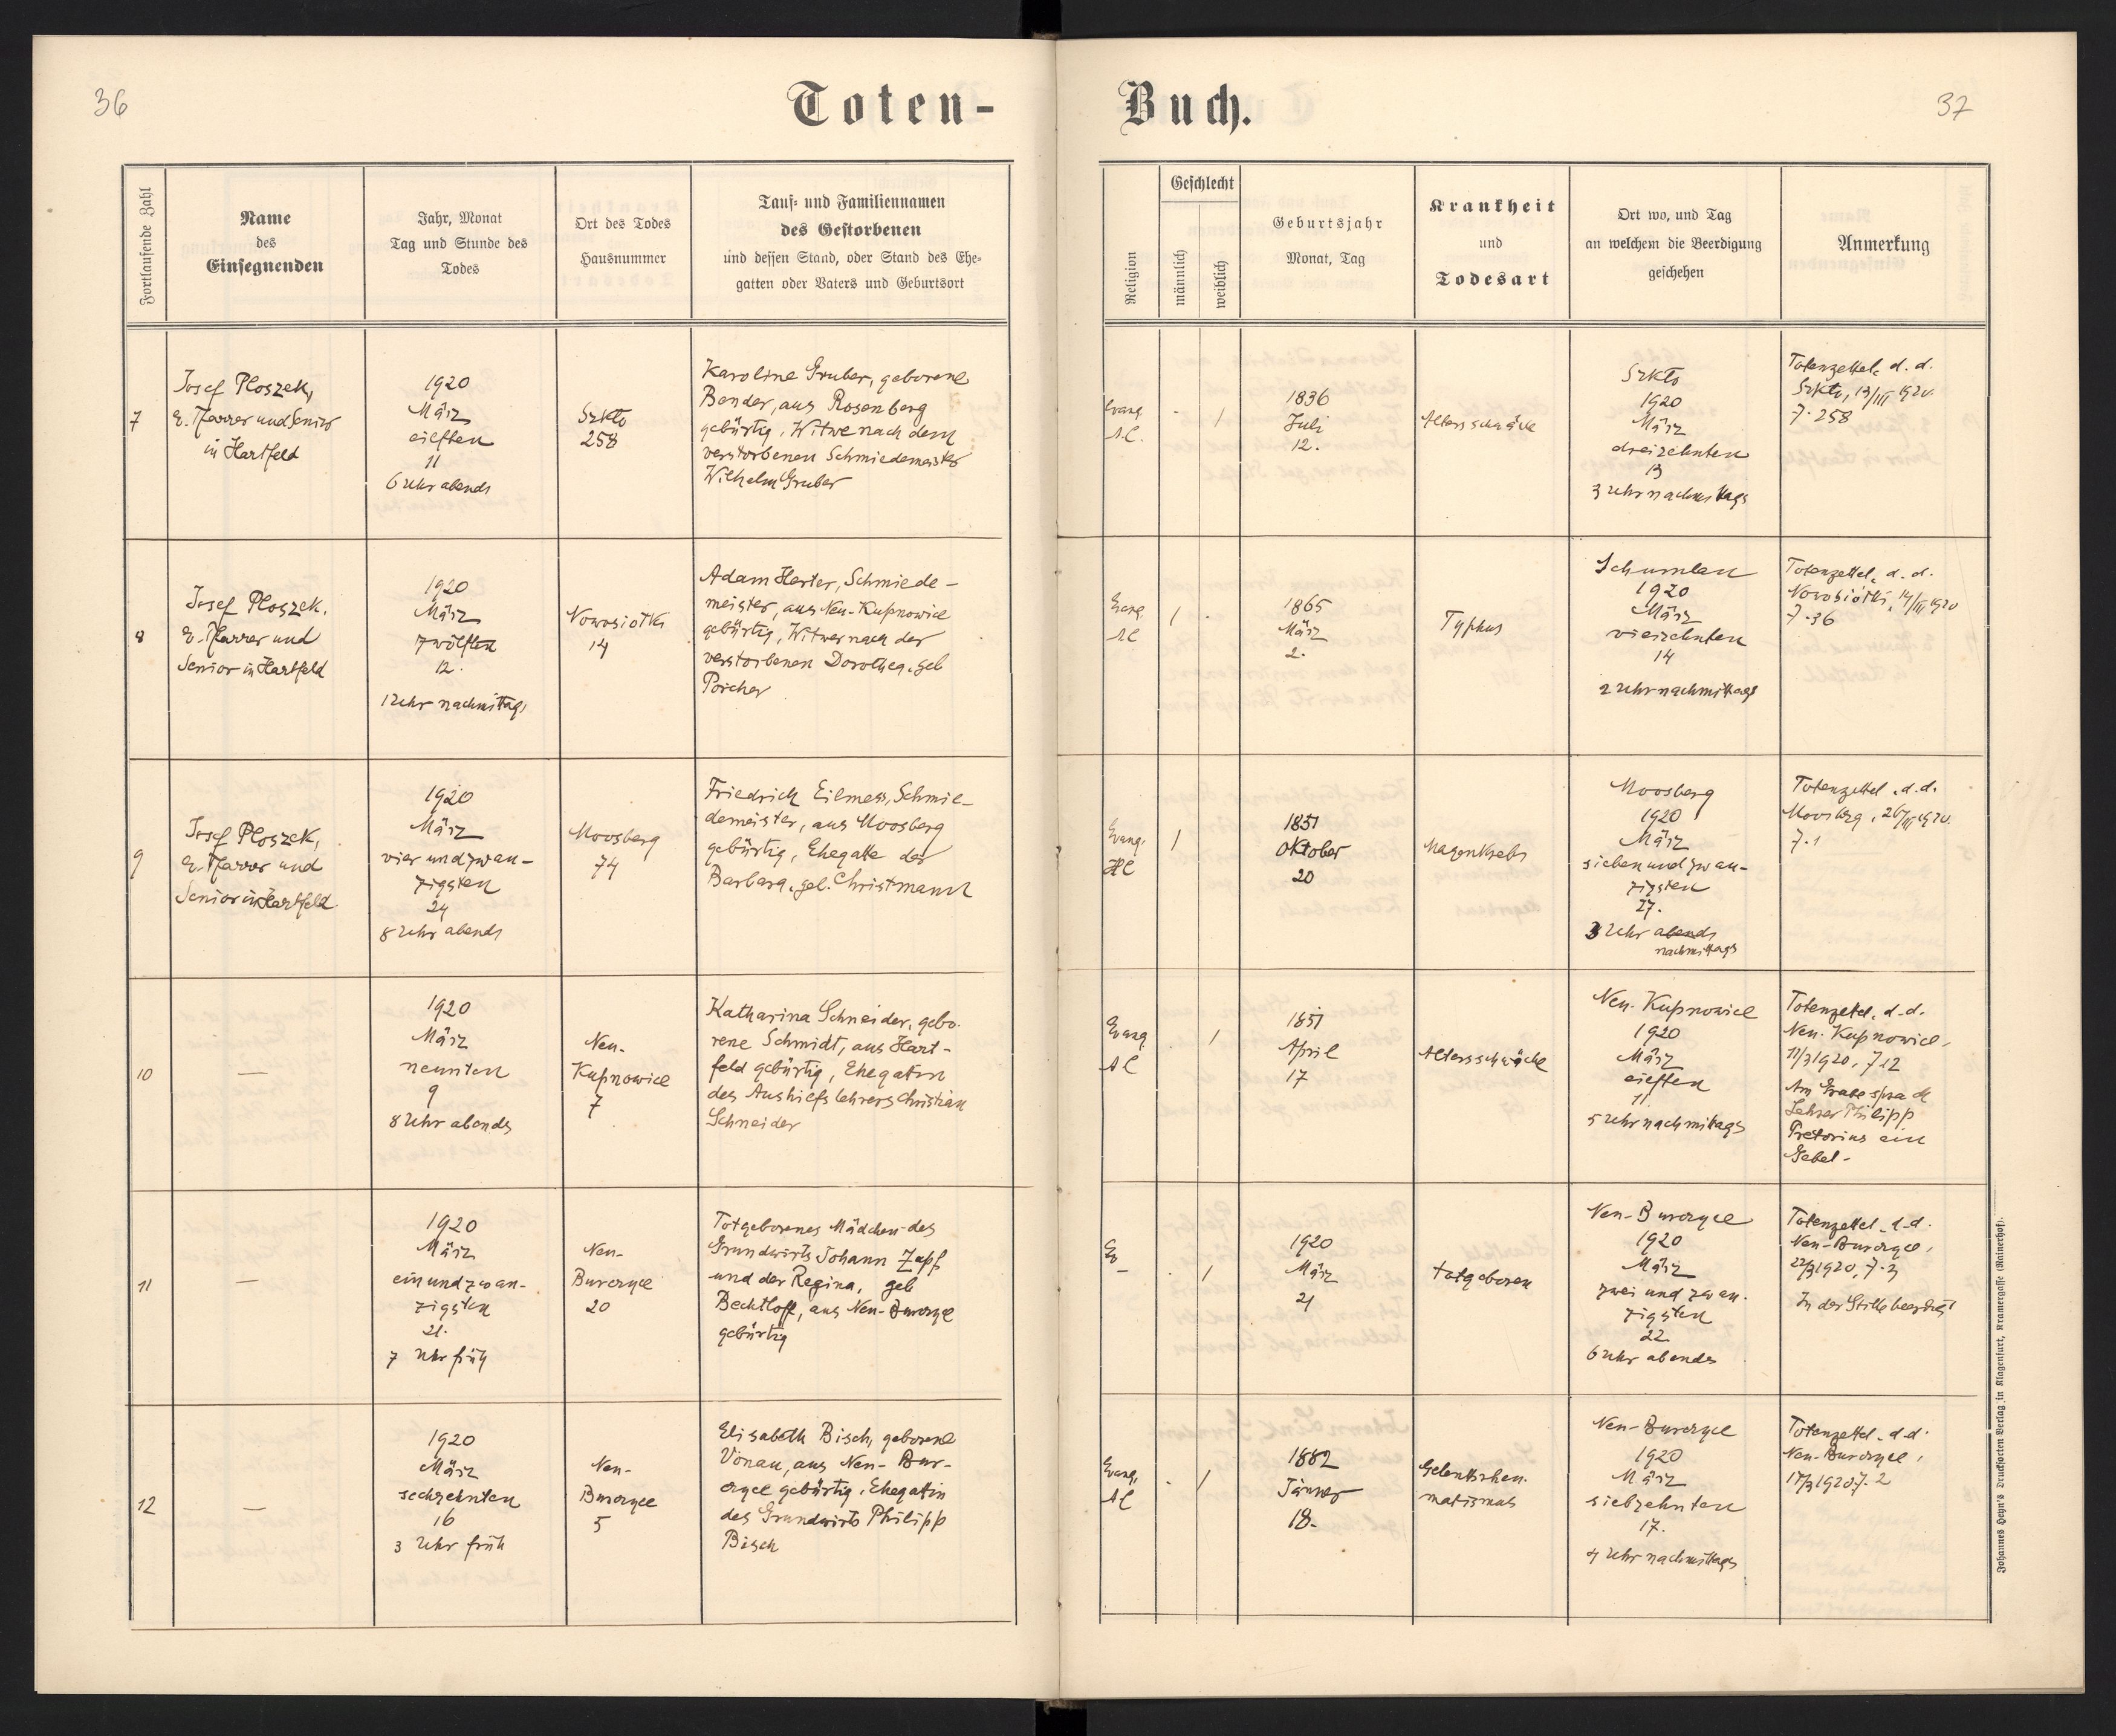 36
Toten-
Buch.
37
Fortlaufende Zahl
Name
des
Einsegnenden
Jahr, Monat
Tag und Stunde des
Todes
Ort des Todes
Hausnummer
Tauf- und Familiennamen
des Gestorbenen
und dessen Stand, oder Stand des Ehe-
gatten oder Vaters und Geburtsort
Religion
Geschlecht
männlich
weiblich
Geburtsjahr
Monat, Tag
Krankheit
und
Todesart
Ort wo, und Tag
an welchem die Beerdigung
geschehen
Anmerkung
7
Josef Ploszek,
E. Pfarrer und Senior
in Hartfeld
1920
März
elften
11
6 Uhr abends
Szkło
258
Karoline Gruber, geborene
Bender, aus Rosenberg
gebürtig, Witwe nach dem
verstorbenen Schmiedemeister
Wilhelm Gruber
Evang.
A.C.
-
1
1836
Juli
12.
Altersschwäche
Szkło
1920
März
dreizehnten
13
3 Uhr nachmittags
Totenzettel, d. d.
Szkło, 13/III 1920.
Z. 258
8
Josef Ploszek.
E. Pfarrer und
Senior in Hartfeld
1920
März
zwölften
12.
1 Uhr nachmittags
Nowosiołki
14
Adam Harter, Schmiede-
meister, aus Neu-Kupnowice
gebürtig, Witwer nach der
verstorbenen Dorothea, geb
Porcher
Evang.
A.C
1
.
1865
März
2.
Typhus
Schumlau
1920
März
vierzehnten
14
2 Uhr nachmittags
Totenzettel, d. d.
Novosiołki, 14/III 1920
Z. 36
9
Josef Ploszek,
E. Pfarrer und
Senior in Hartfeld.
1920
März
vier und zwan-
zigsten
24
8 Uhr abends
Moosberg
74
Friedrich Eilmess, Schmie-
demeister, aus Moosberg
gebürtig, Ehegatte der
Barbara, geb. Christmann
Evang.
HC
1
1851
Oktober
20
Magenkrebs
Moosberg
1920
März
sieben und zwan-
zigsten
27.
3 Uhr abends
nachmittags
Totenzettel, d. d.
Moosberg, 26/III 1920.
Z. 1
10
—
1920
März
neunten
9
8 Uhr abends
Neu-
Kupnowice
7
Katharina Schneider, gebo-
rene Schmidt, aus Hart-
feld gebürtig, Ehegattin
des Aushilfslehrers Christian
Schneider
Evang
AC
.
1
1851
April
17
Altersschwäche
Neu-Kupnowice
1920
März
elften
11
5 Uhr nachmittags
Totenzettel, d. d.
Neu-Kupnowice,
11/3 1920, Z 12
Am Grabe sprach
Lehrer Philipp
Pretorius ein
Gebet-
11
—
1920
März
ein und zwan-
zigsten
21.
7 Uhr früh
Neu-
Burczyce
20
Totgeborenes Mädchen des
Grundwirts Johann Zapf
und der Regina, geb
Bechtloff, aus Neu-Burczyce
gebürtig
Ev
—
.
1
1920
März
21
totgeboren
Neu-Burczyce
1920
März
zwei und zwan-
zigsten
22
6 Uhr abends
Totenzettel, d. d.
Neu-Burczyce,
22/3 1920, Z. 3
In der Stille beerdigt
12
—
1920
März
sechzehnten
16
3 Uhr früh
Neu-
Burczyce
5
Elisabeth Bisch, geborene
Vonau, aus Neu-Bur-
czyce gebürtig, Ehegattin
des Grundwirts Philipp
Bisch
Evang.
AC
-
1
1882
Jänner
18.
Gelenksrheu-
matismus
Neu-Burczyce
1920
März
siebzehnten
17.
4 Uhr nachmittags
Totenzettel, d. d.
Neu-Burczyce,
17/3 1920 Z. 2
Johannes Heyn's Drucksorten Verlag in Klagenfurt, Kramergasse (Rainerhof).